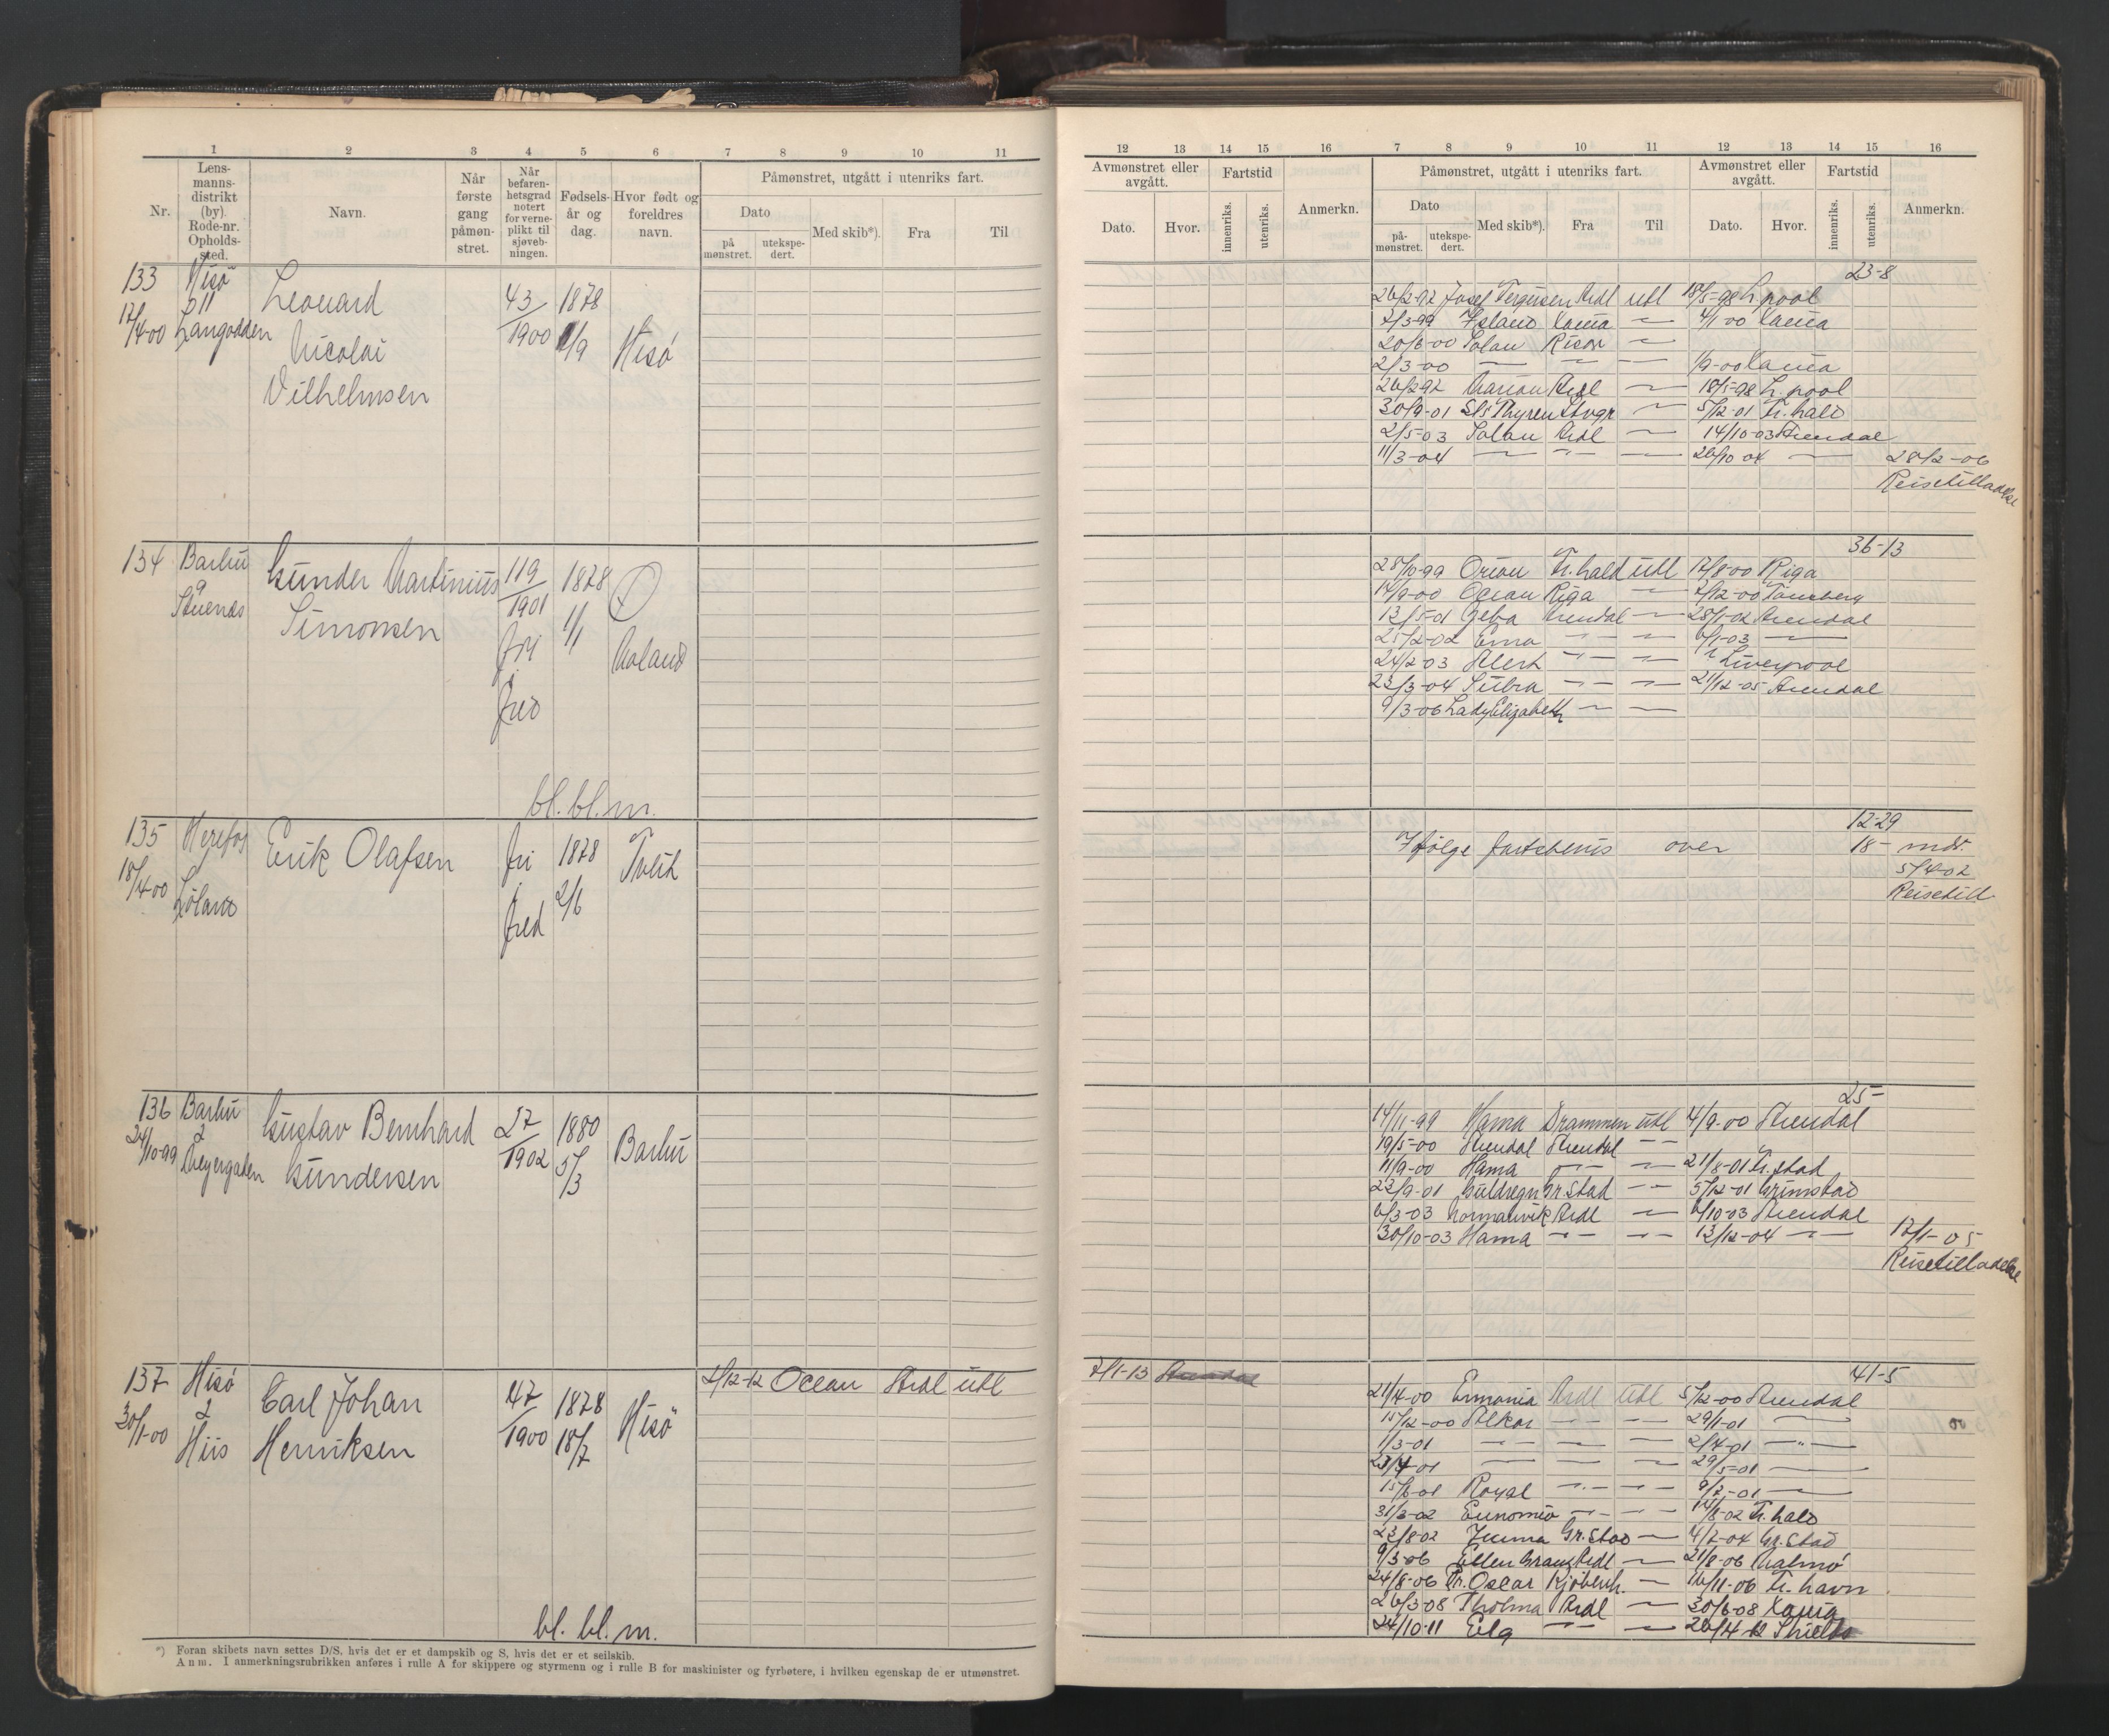 1 2 3 4 5 6 7 8 9 10 11
Nr.
Lens-
manns-
distrikt
(by).
Rode-nr.
Opholds-
sted.
Navn.
Når
første
gang
påmøn-
stret.
Når
befaren-
hetsgrad
notert
for verne-
plikt til
sjøveb-
ningen.
Fødsels-
år og
dag.
Hvor født og
foreldres
navn.
Påmønstret, utgått i utenriks fart.
Dato
på
mønstret.
utekspe-
dert.
Med skib*).
Fra
Til
133 Hisö
17/4-00 Langodden
Leonard
Nicolai
Vilhelmsen
43/1900
1878
Hisö
134 Barbu
9
Gunder Martinius
Simonsen
119/1901
fri
fred
1878
1/1
bl. bl. m.
135
18/4-00
Erik Olafsen
fri
fred
1878
2/6
Tveit
136 Barbu
24/10-99 2
Gustav Bernhard
Gundersen
27/1902
1880
5/3
Barbu
137 Hisö
30/1-00 2
Hiis
Carl Johan
Henriksen
47/1900
1878
18/7
Hisö
Ocean Ardl utl
bl. bl. m.
*) Foran skibets navn settes D/S, hvis det er et dampskib og S, hvis det er et seilskib.
Anm. I anmerkningsrubrikken anføres i rulle A for skippere og styrmenn og i rulle B for maskinister og fyrbøtere, i hvilken egenskap de er utmønstret.
12 13 14 15 16 7 8 9 10 11 12 13 14 15 16
Avmønstret eller
avgått.
Dato.
Hvor.
Fartstid
innenriks.
utenriks.
Anmerkn.
Påmønstret, utgått i utenriks fart.
Dato
på-
mønstret.
utekspe-
dert.
Med skib*).
Fra
Til
Avmønstret eller
avgått.
Dato.
Hvor.
Fartstid
innenriks.
utenriks.
Anmerkn.
23-8
Josef Tergersen Ardl utl 18/5-98 L.pool
2/3-99 Island 4/1-00
20/6-00 Solan Risør —
2/3-00 — — —
Ardl — 18/5-98 L.pool
30/9-01 — 5/12-01 Fr.hald
2/5-03 Solan Ardl — 14/10-03 Arendal
11/3-04 — — — 26/10 04 —
Reisetilladelse
36-13
28/10-99 Orion Fr.hald utl 17/8-00 Riga
14/9-00 Ocean Riga — Tønsberg
Arendal — 28/1-02 Arendal
25/2-02 Erna — — 6/1-03 —
24/2-03 Alert — — Liverpool
23/3-04 — — 21/12-05 Arendal
9/3-06 Lady Elizabeth — —
12-29
Ifølge fartsbevis over 18- mdr.
5/4-02
Reisetill
25-
14/11-99 Hama Drammen utl 4/9-00 Arendal
19/5-00 Arendal Arendal —
11/9-00 Hama — — 21/8-01 Fr.stad
23/9-01 Guldregn Gr.stad — 5/12-01 Grimstad
6/3-03 Ardl — 6/10-03 Arendal
30/10-03 Hama — — 13/12-04 —
17/1-05
Reisetilladelse
7/1-13
41-5
21/4-00 Ardl utl 5/12-00 Arendal
15/12-00 — — 29/1-01 —
1/3-01 — — — 2/4-01 —
— — — 29/5-01 —
15/6-01 Royal — — 9/7-01 —
31/3-02 Eunomia — — 14/8-02 Fr.hald
23/8-02 Gr.stad — 4/7-04 Gr.stad
9/3-06 Ardl — 21/8-06 Malmö
24/8-06 Oscar Kjöbenh. — 16/11-06 Fr.havn
26/3-08 Ardl — 30/6-08
24/10-11 — — Shields